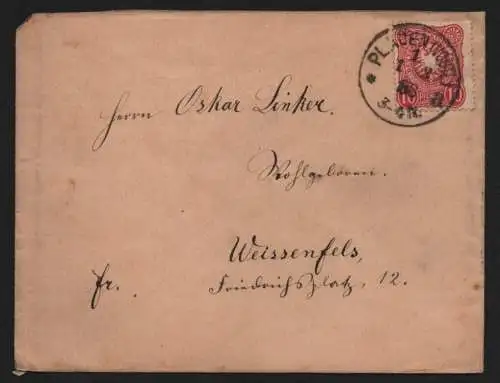 * PLAUEN
3-4N.
10 10
Herrn Oskar Linker.
Wohlgeboren.
Weissenfels,
fr. Friedrichsplatz, 12.